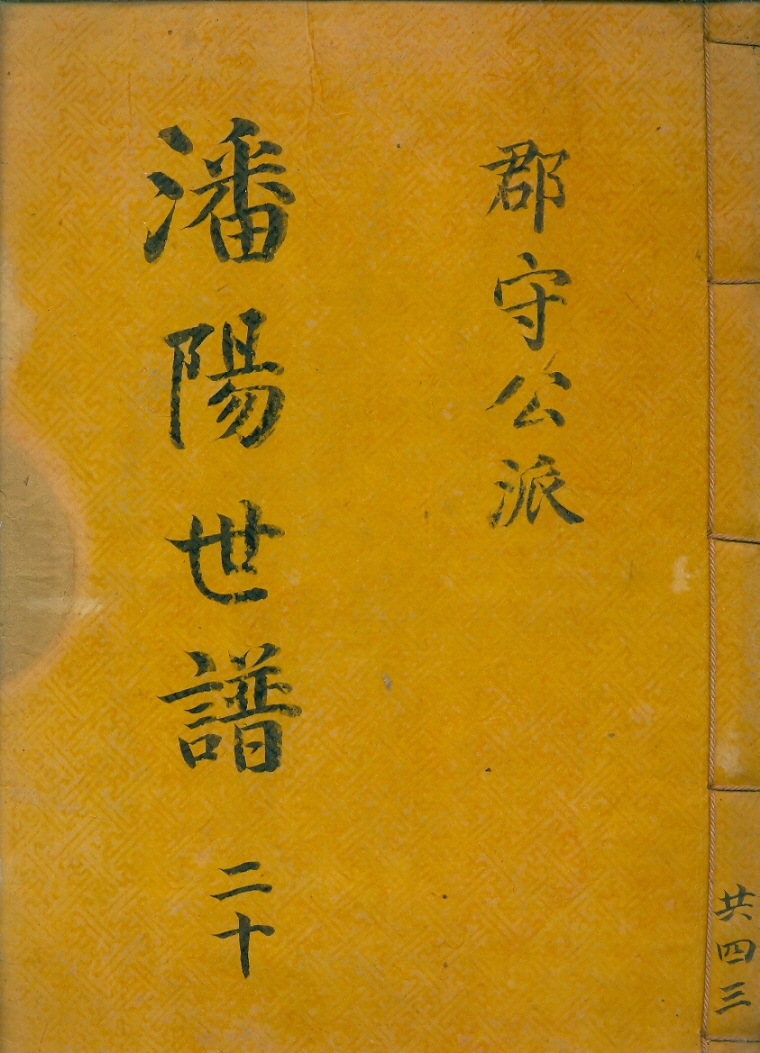 共四三
郡守公派
潘陽世譜 二十